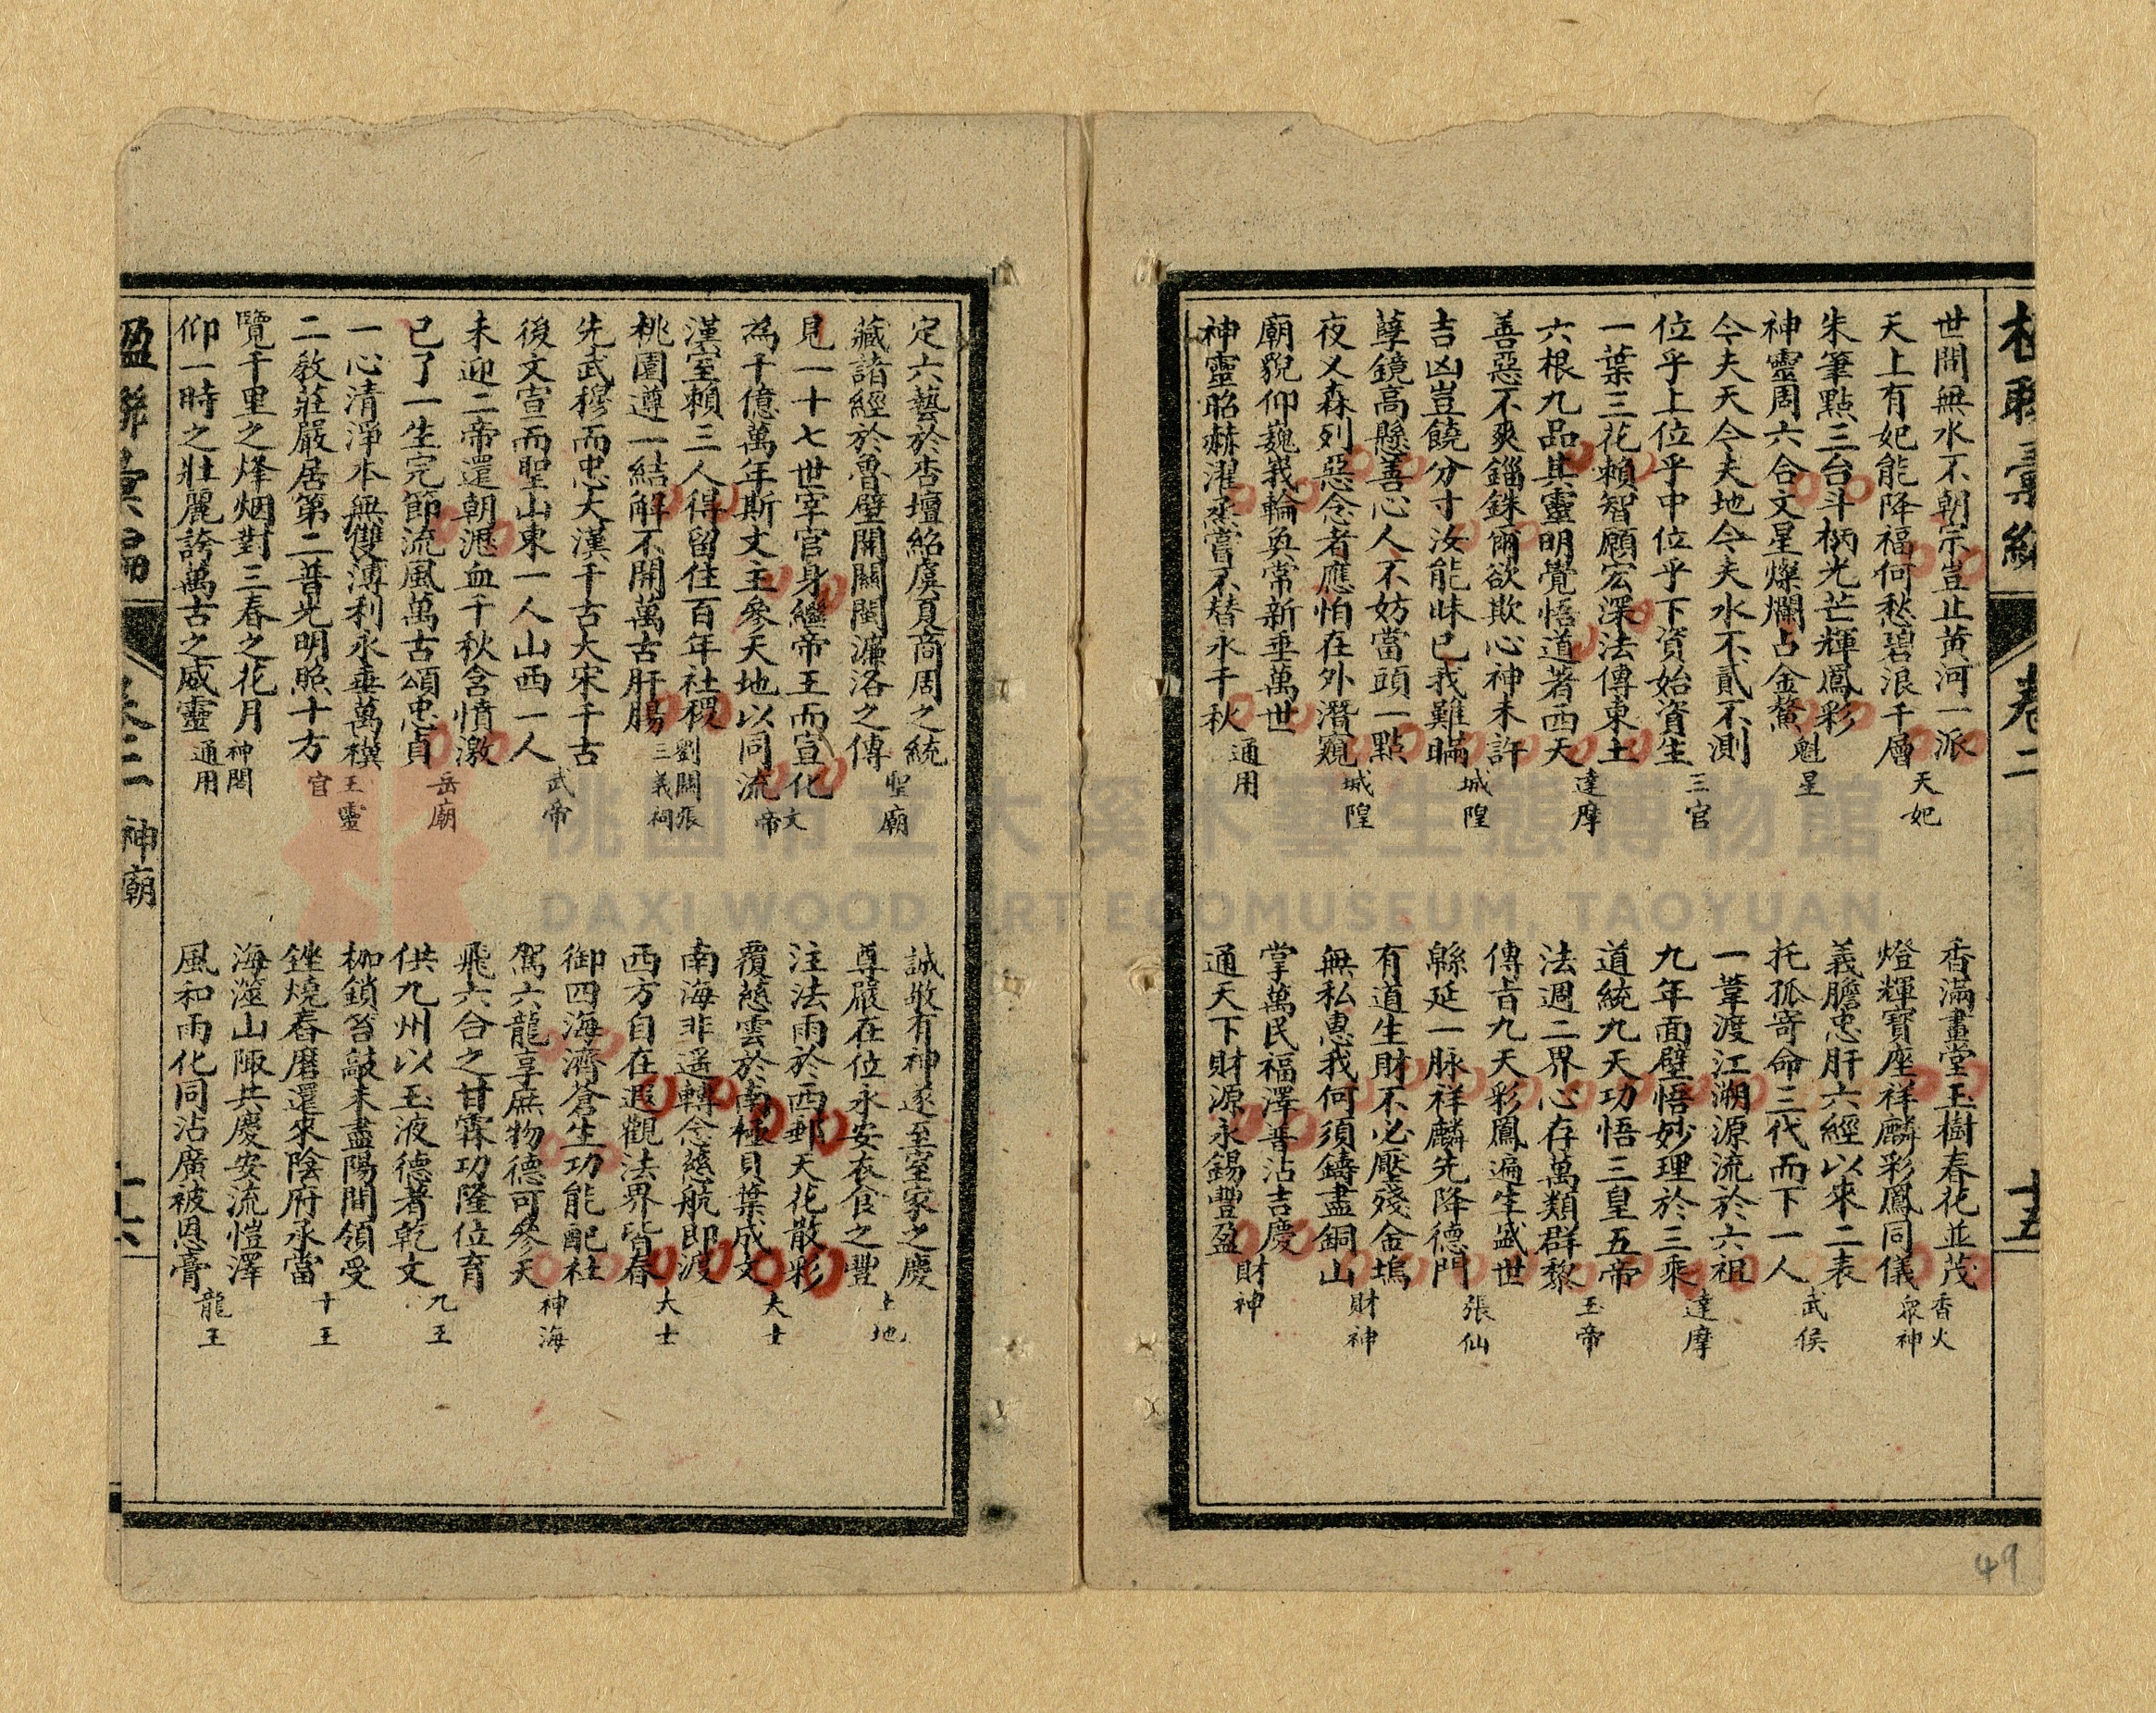 楹聯彙編
卷二
十五
世間無水不朝宗豈止黃河一派
天上有妃能降福何愁碧浪千層
天妃
朱筆點三台斗柄光芒輝鳳彩
神靈周六合文星燦爛占金鰲
魁星
今夫天今夫地今夫水不貳不測
位乎上位乎中位乎下資始資生
三官
一葉三花賴智願宏深法傳東土
六根九品其靈明覺悟道著西天
達摩
善惡不爽錙銖爾欲欺心神未許
吉凶豈饒分寸汝能昧已我難瞞
城隍
孽鏡高懸善心人不妨當頭一點
夜叉森列惡念者應怕在外潛窺
城隍
廟貌仰巍峩輪奐常新垂萬世
神靈昭赫濯烝嘗不替永千秋
通用
香滿畫堂玉樹春花並茂
燈輝寶座祥麟彩鳳同儀
香火
眾神
義膽忠肝六經以來二表
托孤寄命三代而下一人
武侯
一葦渡江溯源流於六祖
九年面壁悟妙理於三乘
達摩
道統九天功悟三皇五帝
法週二界心存萬類群黎
玉帝
傳旨九天彩鳳遍生盛世
緜延一脉祥麟先降德門
張仙
有道生財不必壓殘金塢
無私惠我何須鑄盡銅山
財神
掌萬民福澤普沾吉慶
通天下財源永錫豐盈
財神
定六藝於杏壇紹虞夏商周之統
藏諸經於魯壁開關閩濂洛之傳
聖廟
見一十七世宰官身繼帝王而宣化
為千億萬年斯文主參天地以同流
文帝
漢室賴三人得留住百年社稷
桃園遵一結解不開萬古肝腸
劉關張
三義祠
先武穆而忠大漢千古大宋千古
後文宣而聖山東一人山西一人
武帝
未迎二帝還朝滬血千秋含憤激
已了一生完節流風萬古頌忠貞
岳廟
一心清淨本無雙溥利永垂萬禩
二教莊嚴居第二普光明照十方
王靈
官
覽千里之烽烟對三春之花月
仰一時之壯麗誇萬古之威靈
神閣
通用
誠敬有神遂至室家之慶
尊嚴在位永安衣食之豐
土地
注法雨於西郵天花散彩
覆慈雲於南極貝葉成文
大士
南海非遥轉念慈航即渡
西方自在遐觀法界皆春
大士
御四海濟蒼生功能配社
駕六龍享庶物德可參天
神海
飛六合之甘霖功隆位育
供九州以玉液德著乾文
九王
枷鎖笞敲未盡陽間領受
銼燒舂磨還來陰府承當
十王
海滋山陬共慶安流愷澤
風和雨化同沾廣被恩膏
龍王
楹聯彙編
卷二
神廟
十六
49
桃園市立大溪木藝生態博物館
DAXI WOOD ART ECOMUSEUM, TAOYUAN